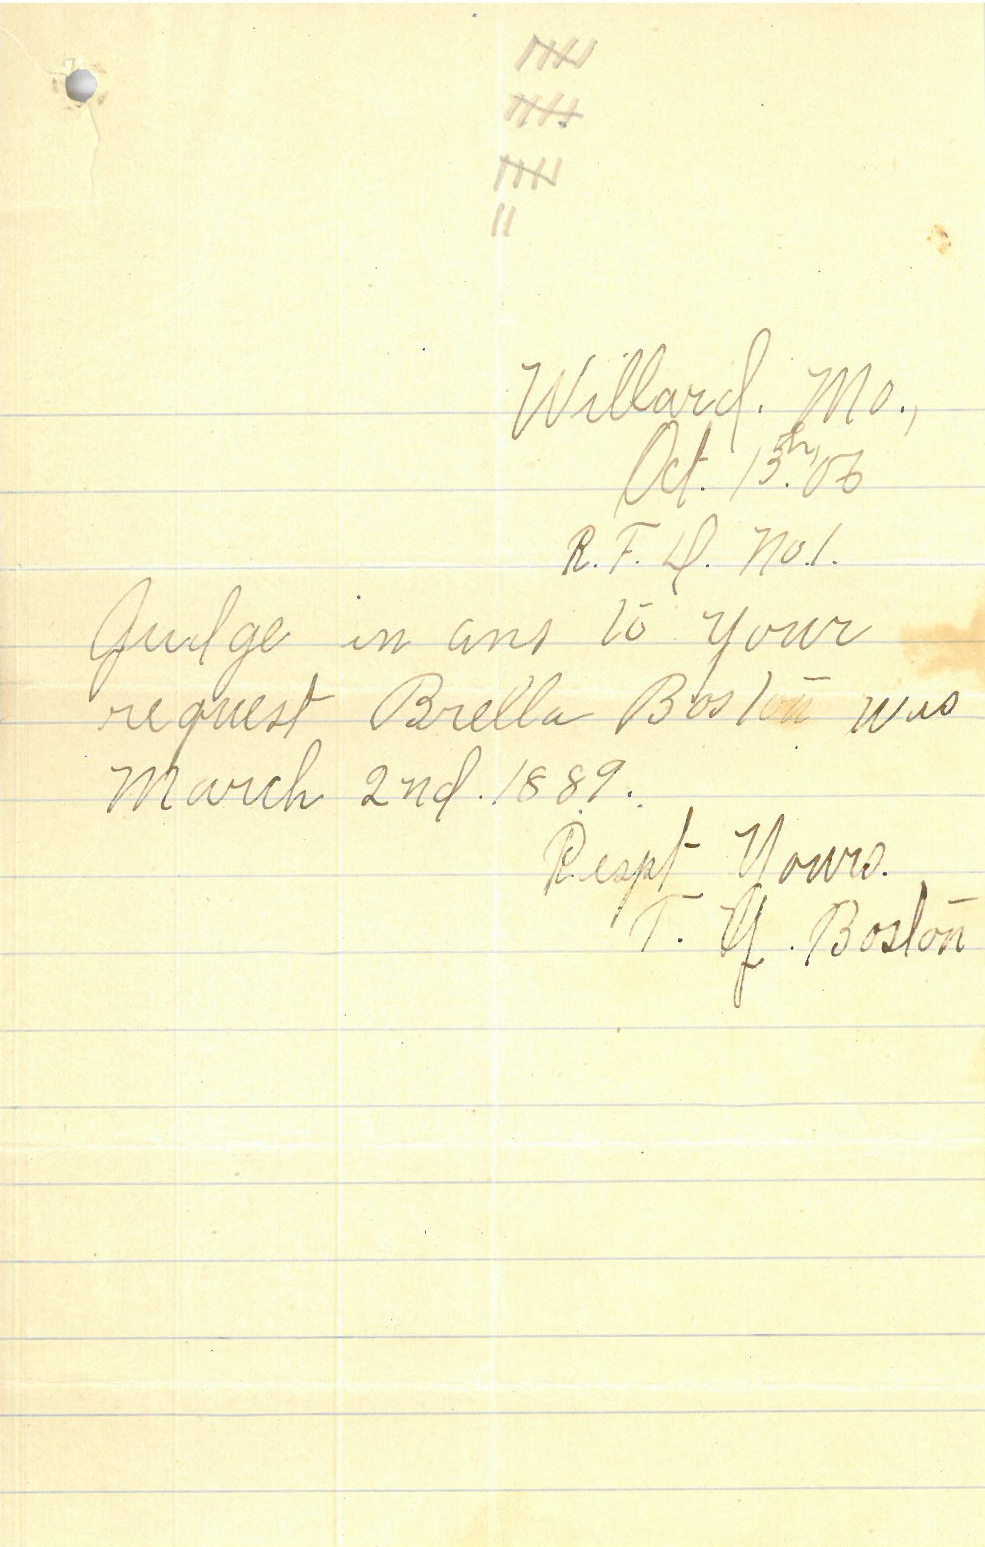 Willard. Mo.,
Oct. 13th, '06
R. F. D. No. 1.
Judge in ans to your
request Brella Boston was
March 2nd. 1889.
Respt Yours.
T. Y. Boston